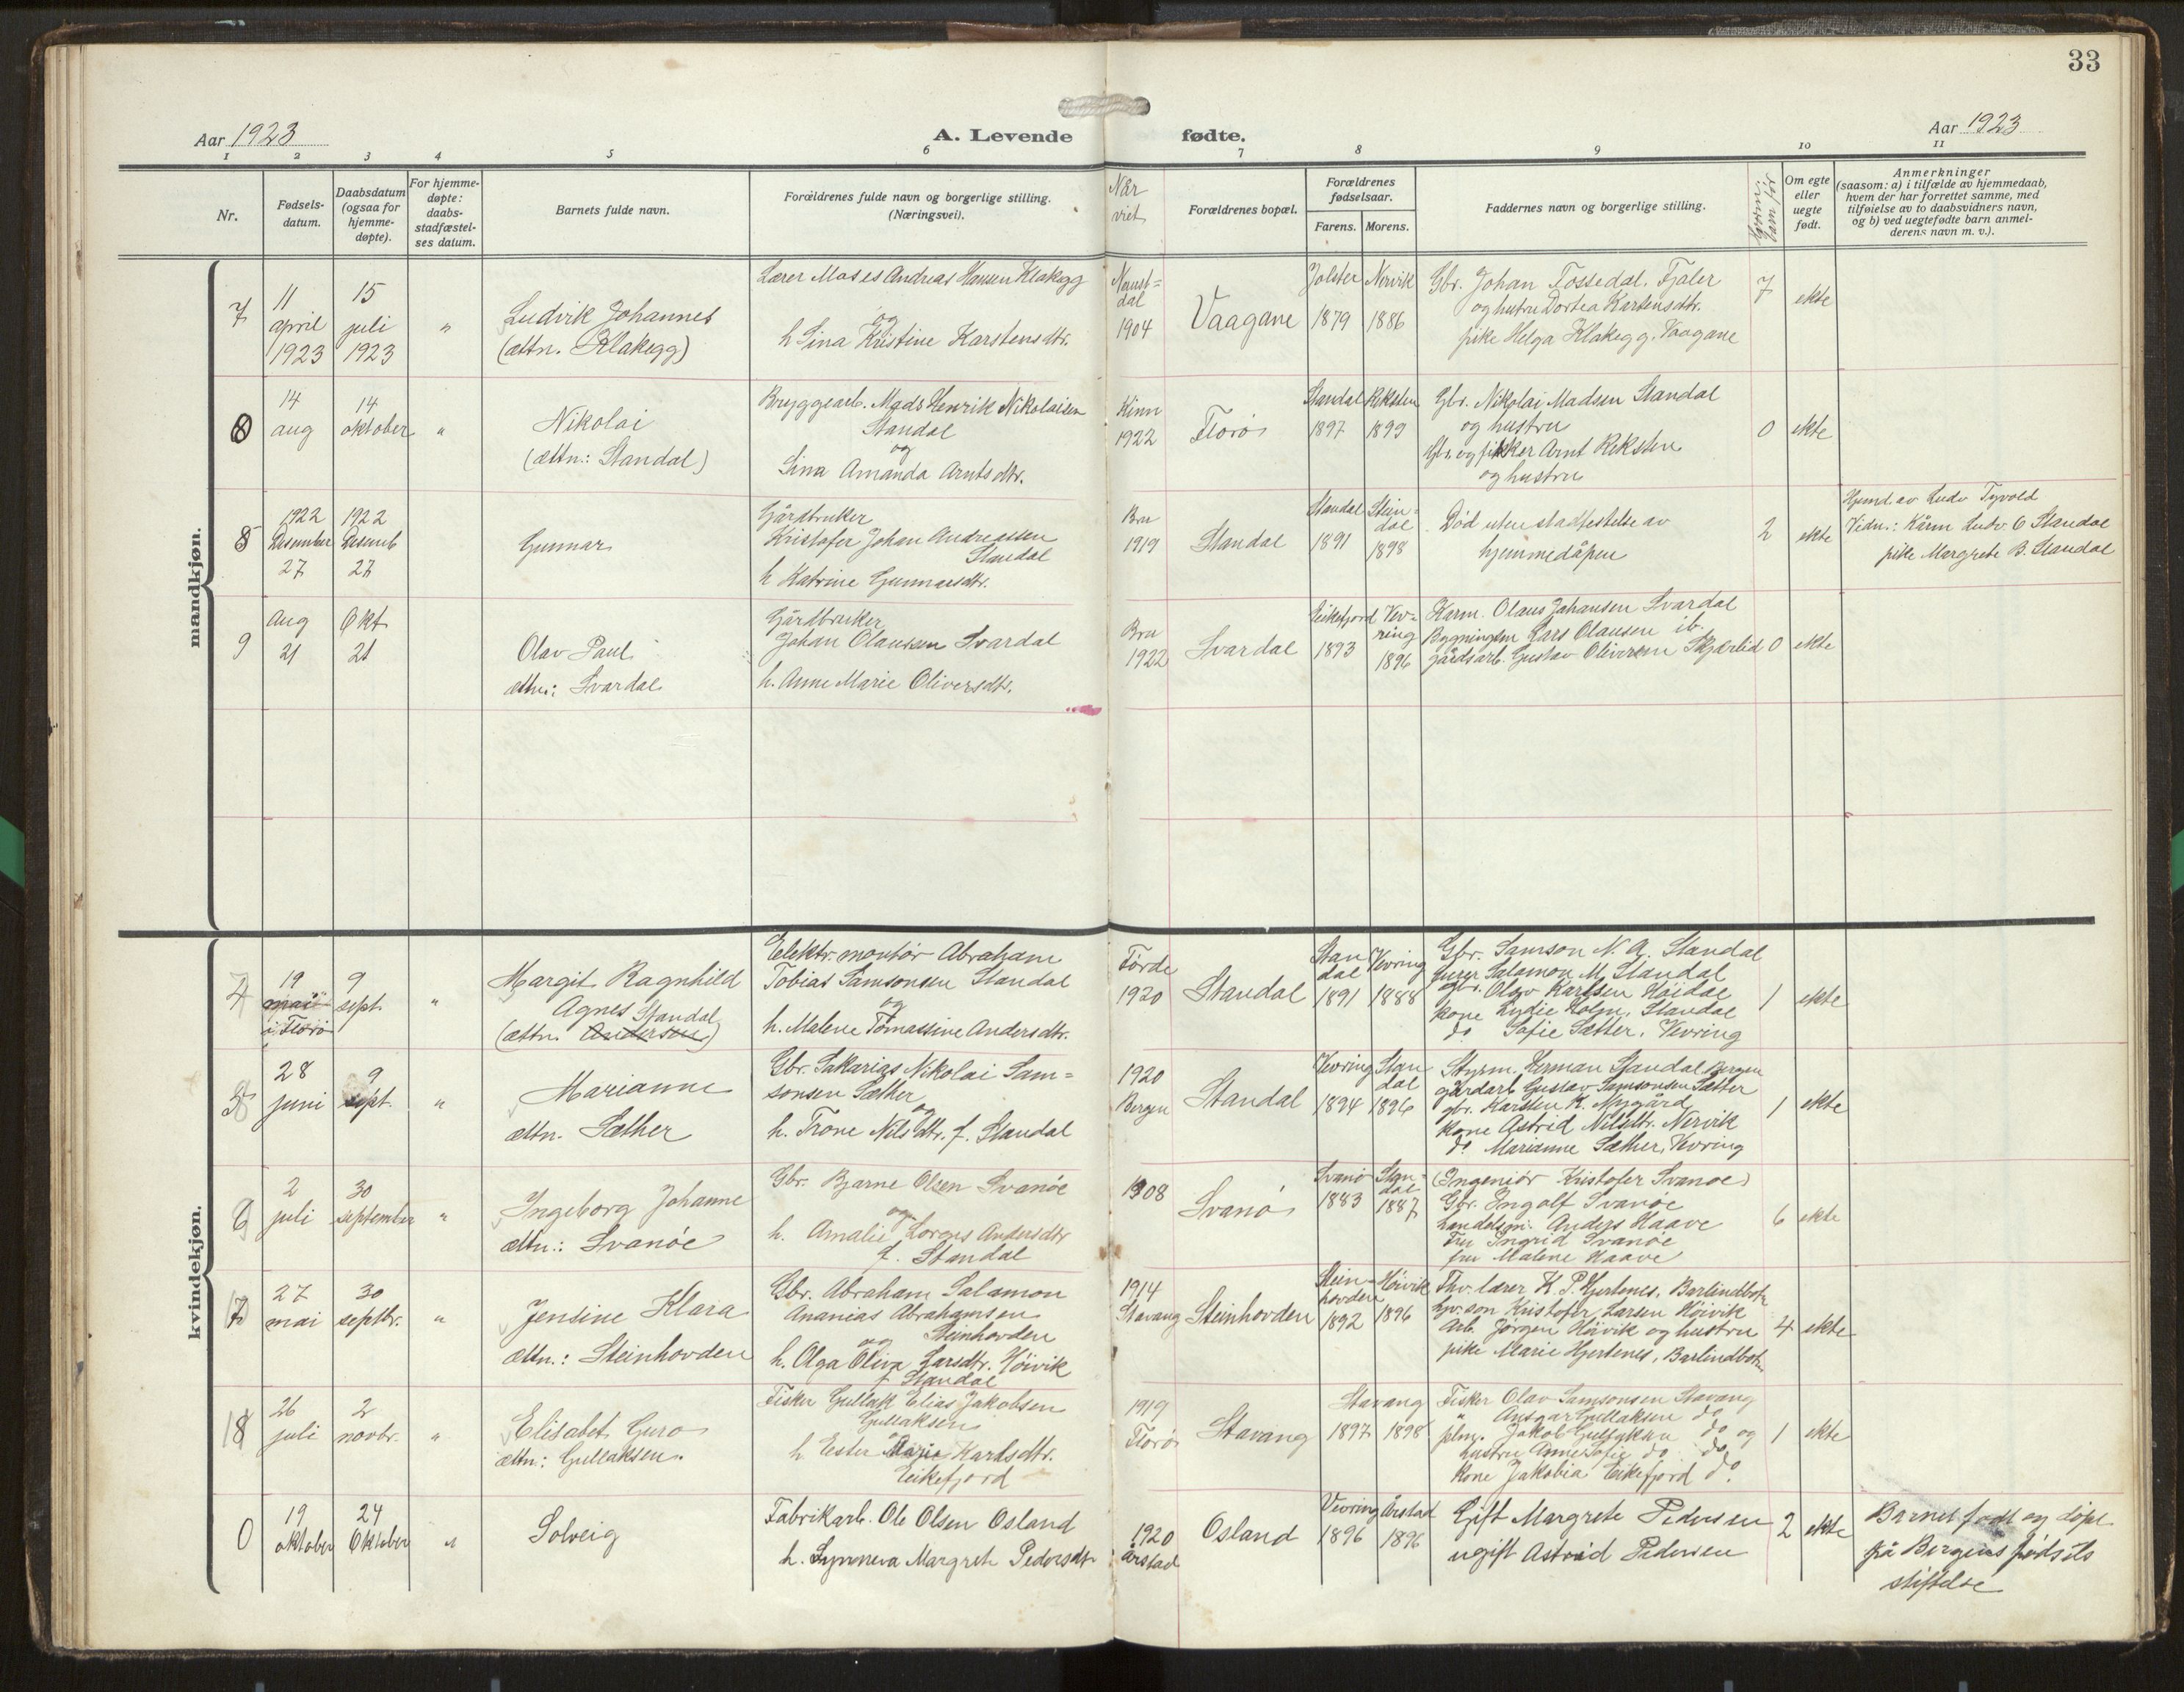 33
Aar 1923
A. Levende fødte.
Aar 1923
1 2 3 4 5 6 7 8 9 10 11
Nr.
Fødsels-
datum.
Daabsdatum
(ogsaa for
hjemme-
døpte).
For hjemme-
døpte:
daabs-
stadfæstel-
ses datum.
Barnets fulde navn.
Forældrenes fulde navn og borgerlige stilling.
(Næringsvei).
Nær
viet
Forældrenes bopæl.
Forældrenes
fødselsaar.
Farens. Morens.
Faddernes navn og borgerlig stilling.
barn før
Om egte
eller
uegte
født.
Anmerkninger
(saasom: a) i tilfælde av hjemmedaab,
hvem der har forrettet samme, med
tilføielse av to daabsvidners navn,
og b) ved uegtefødte barn anmel-
derens navn m. v.).
mandkjøn.
7
11
april
1923
15
juli
1923
"
Ludvik Johannes
(ættn. Klakegg)
Lærer Moses Andreas Hansen Klakegg
og
h Lina Kristine Karstensdtr.
Naust=
dal
1904
Vaagane
Jølster
1879
Nervik
1886
Gbr. Johan Tossedal, Fjaler
og hustru Dortea Karstensdtr.
pike Helga Klakegg, Vaagane
7
ekte
8
14
aug
14
oktober
"
Nikolai
(ættn.: Standal)
Bryggearb. Mads Henrik Nikolaisen
Standal
og
Lina Amanda Arntsdtr.
Kinn
1922
Florø
Standal
1897
Reksten
1899
Gbr. Nikolai Madsen Standal
og hustru
Gbr. og fisker Arnt Reksten
og hustru
0
ekte
8
1922
Desember
27
1922
Desemb
27
Gunnar
Gårdbruker
Kristofer Johan Andreassen
Standal
h Katrine Gunnarsdtr.
Bru
1919
Standal
Standal
1891
Stein-
dal
1898
Død uten stadfestelse av
hjemmedåpen
2
ekte
Hjemd. av Ludv Tyvold
Vidn.: Kårm Ludv O Standal
pike Margrete B. Standal
9
Aug
21
Okt
21
Olav Paul
ættn: Svardal
Gårdbruker
Johan Olaussen Svardal
h. Anne Marie Oliversdtr.
Bru
1922
Svardal
Eikefjord
1893
Vev=
ring
1896
Karm. Olaus Johansen Svardal
Bygningsm Lars Olausen ib.
gårdsarb. Gustav Oliversen Skjærlid
0
ekte
kvindekjøn.
4
19
mai
i Florø
9
sept.
"
Margit Ragnhild
Agnes Standal
(ættn. Andersen)
Elektr. montør Abraham
Tobias Samsonsen Standal
og
h. Malene Tomassine Andersdtr.
Førde
1920
Standal
Stan
dal
1891
Vevring
1888
Gbr. Samson N. A. Standal
Salamon M Standal
gbr. Olav Karlsen Høidal
kone Lydie Holm, Standal
do Sofie Sætter, Vevring
1
ekte
5
28
juni
9
sept.
"
Marianne
ættn. Sæther
Gbr. Sakarias Nikolai Sam=
sonsen Sæther
og
h. Trone Nilsdtr. f. Standal
1920
Bergen
Standal
Vevring
1894
Stan
dal
1896
Styrm. Herman Standal Bergen
gårdarb Gustav Samsonsen Sætter
gbr. Karsten K. Mygård
kone Astrid Nilsdtr. Nervik
do Marianne Sæther, Vevring
1
ekte
6
2
juli
30
september
"
Ingeborg Johanne
ættn.: Svanøe
Gbr. Bjarne Olsen Svanøe
og
h. Amalie Lovens Andersdtr
f. Standal
1908
Svanø
Svanø
1883
Stan-
dal
1887
(Ingeniør Kristofer Svanøe)
Gbr. Ingolf Svanøe
handelsm. Anders Haave
Fru Ingrid Svanøe
fru Malene Haave
6
ekte
7
27
mai
30
septbr.
"
Jensine Klara
ættn.: Steinhovden
Gbr. Abraham Salamon
Ananias Abrahamsen
og Steinhovden
h. Olga Oliva Larsdtr. Høivik
f Standal
1914
Stavang
Steinhovden
Stein-
hovden
1892
Høivik
1896
Fhv. lærer K. P. Hjertenes, Barlindbotn
Gbr.son Kristofer Larsen Høivik
Arb. Jørgen Høivik og hustru
pike Marie Hjertenes, Barlindbotn
4
ekte
8
26
juli
2
novbr.
"
Elisabet Guro
ættn: Gullaksen.
Fisker Gullak Elias Jakobsen
Gullaksen
h Ester Marie Karlsdtr.
Eikefjord
1919
Florø
Stavang
Stavang
1897 1898
Fisker Olav Samsonsen Stavang
Ansgar Gullaksen do
Jakob Gullaksen do og
hustru Anne Sofie do do
kone Jakobia Eikefjord do.
1
ekte
0
19
oktober
24
Oktober
"
Solveig
Fabrikarb. Ole Olsen Osland
h. Synneva Margrete Pedersdtr
1920
Årstad
Osland
Vevring
1896
Årstad
1896
Gift Margrete Pedersen
ugift Astrid Pedersen
2
ekte
Barnet født og døpt
på Bergens fødsels
stiftelse